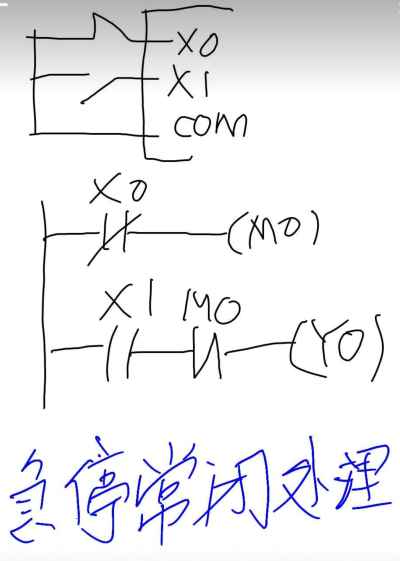 X0
X1
COM
X0
(M0)
X1 M0
(Y0)
急停常闭处理